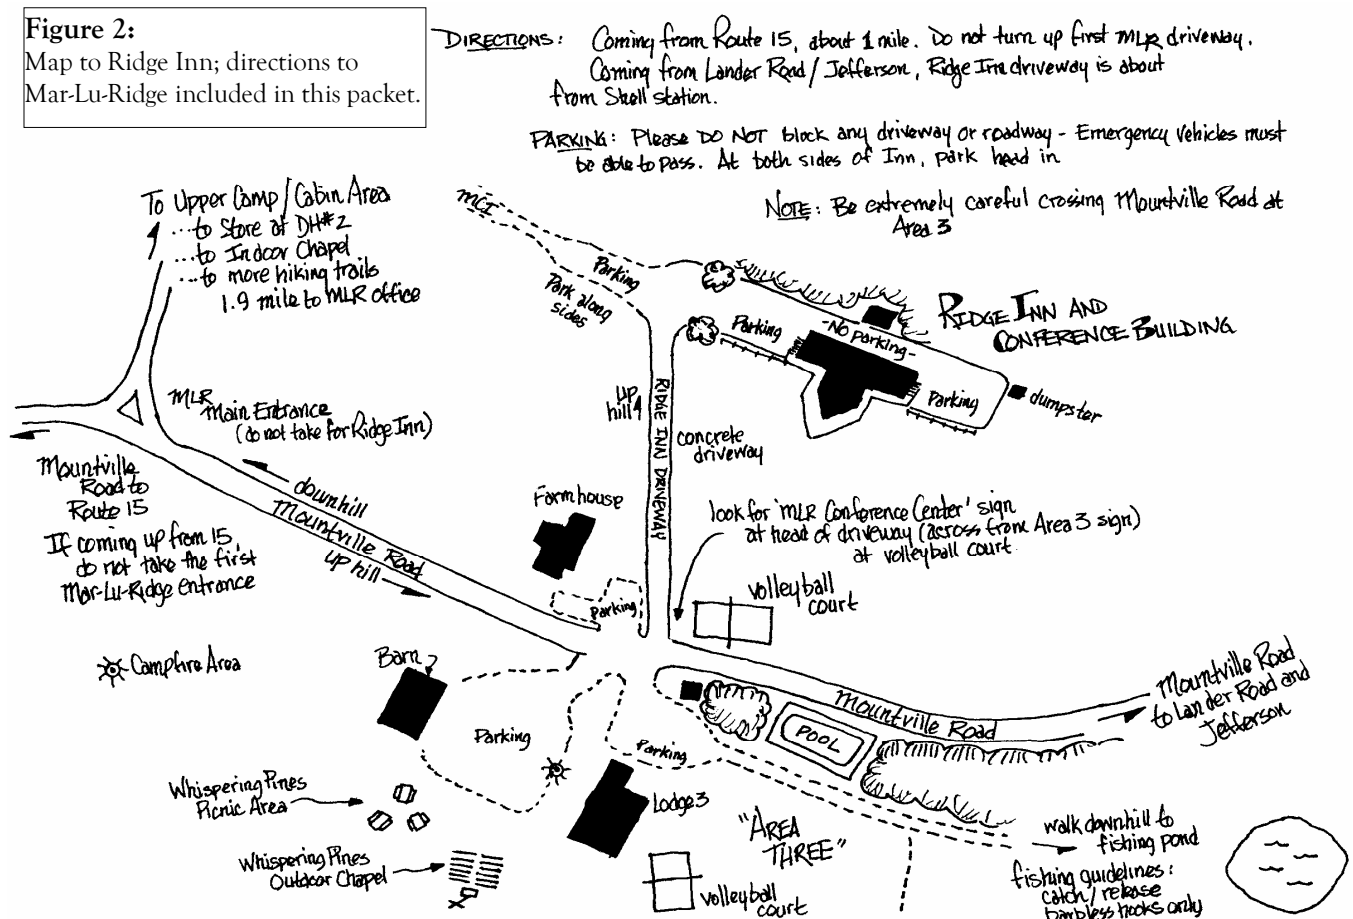 Figure 2:
Map to Ridge Inn; directions to
Mar-Lu-Ridge included in this packet.
DIRECTIONS: Coming from Route 15, about 1 mile. Do not turn up first MLR driveway.
Coming from Lander Road / Jefferson, Ridge Inn driveway is about
from Shell station.
PARKING: Please DO NOT block any driveway or roadway - Emergency Vehicles must
be able to pass. At both sides of Inn, park head in
NOTE: Be extremely careful crossing Mountville Road at
Area 3
To Upper Camp / Cabin Area
...to Store at DH#2
...to Indoor Chapel
...to more hiking trails
1.9 mile to MLR office
MCI
Parking
Park along
sides
Parking
-No parking-
RIDGE INN AND
CONFERENCE BUILDING
Parking
dumpster
MLR
Main Entrance
(do not take for Ridge Inn)
up
hill
RIDGE INN DRIVEWAY
concrete
driveway
Mountville
Road to
Route 15
If coming up from 15,
do not take the first
Mar-Lu-Ridge entrance
downhill
Mountville Road
up hill
Farmhouse
Parking
look for 'MLR Conference Center' sign
at head of driveway (across from Area 3 sign)
at volleyball court
volleyball
court
Campfire Area
Barn
Parking
Parking
Mountville Road
POOL
Mountville Road
to Lander Road and
Jefferson
Whispering Pines
Picnic Area
Lodge 3
"AREA
THREE"
walk downhill to
fishing pond
Whispering Pines
Outdoor Chapel
volleyball
court
fishing guidelines:
catch / release
barbless hooks only